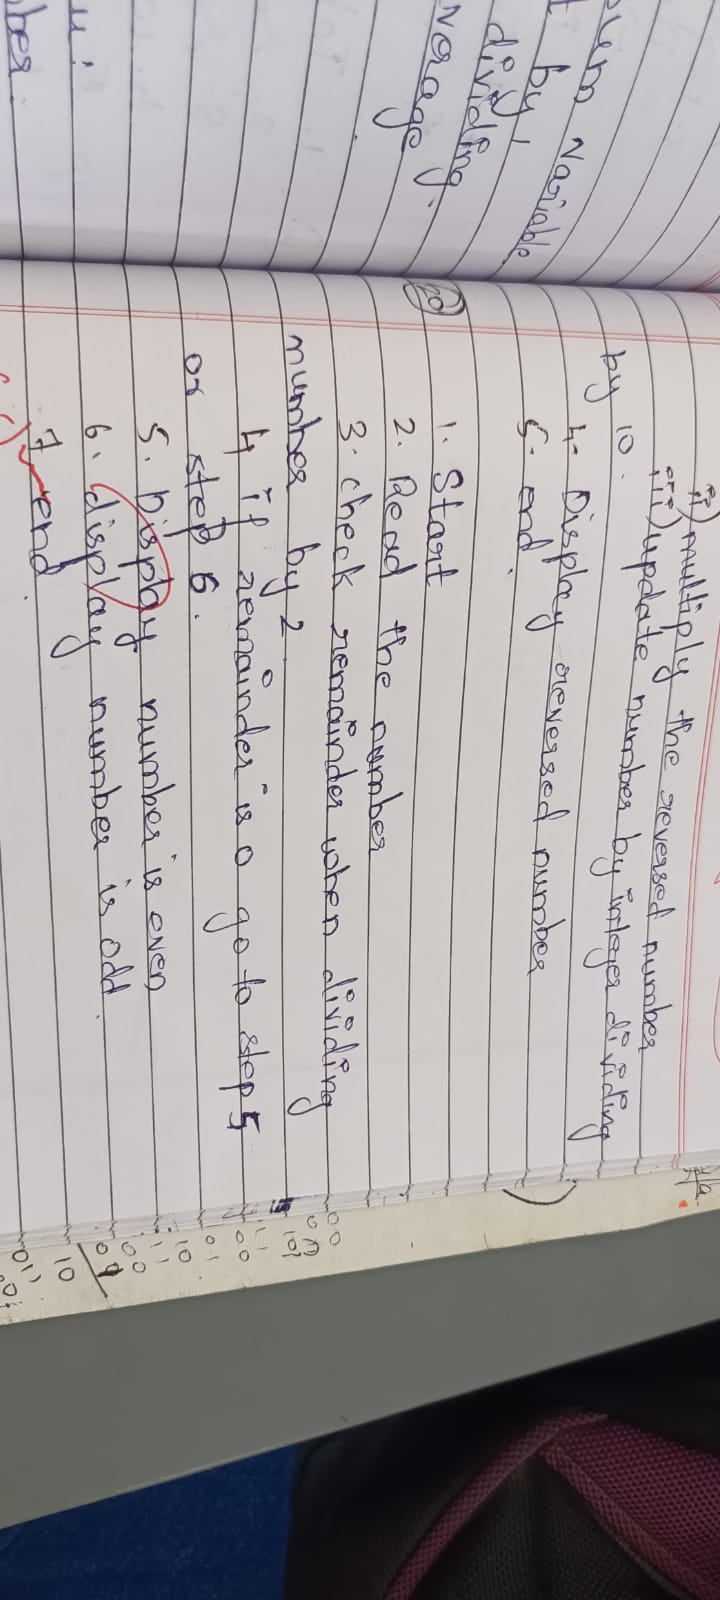 sum variable
t by
dividing
verage.
u:
ber
ii) multiply the reversed number
iii) update number by integer dividing
by 10.
4. Display reversed number
5. end.
20
1. Start
2. Read the number
3. check remainder when dividing
number by 2
4 if remainder is 0 go to step 5
or step 6.
5. Display number is even
6. display number is odd.
7 end